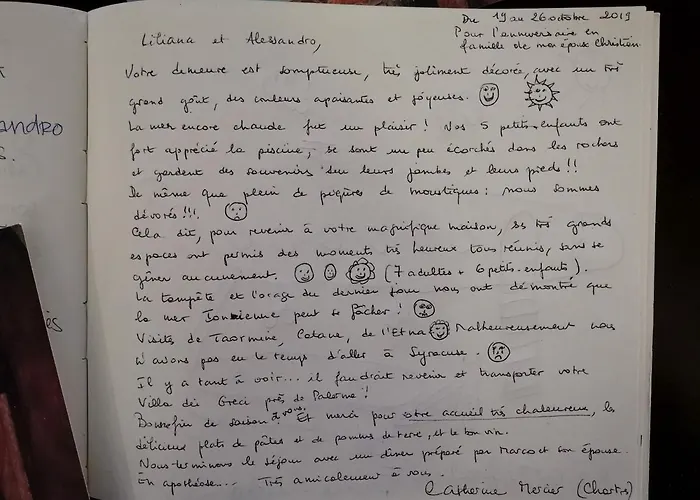 andro
s.
ès
Du 19 au 26 octobre 2019
Pour l'anniversaire en
famille de mon épouse Christian
Liliana et Alessandro,
Votre demeure est somptueuse, très joliment décorée, avec un très
grand goût, des couleurs apaisantes et joyeuses.
La mer encore chaude fut un plaisir ! Nos 5 petits-enfants ont
fort apprécié la piscine, se sont un peu écorchés dans les rochers
et gardent des souvenirs sur leurs jambes et leurs pieds !!
De même que plein de piqûres de moustiques : nous sommes
dévorés !!!
Cela dit, pour revenir à votre magnifique maison, ses très grands
espaces ont permis des moments très heureux tous réunis, sans se
gêner aucunement. (7 adultes + 6 petits-enfants).
La tempête et l'orage du dernier jour nous ont démontré que
la mer Ionienne peut se fâcher !
Visites de Taormine, Catane, de l'Etna Malheureusement nous
n'avons pas eu le temps d'aller à Syracuse.
Il y a tant à voir... il faudrait revenir et transporter votre
Villa dei Greci près de Palerme !
Bonne fin de saison à vous. Et merci pour votre accueil très chaleureux, les
délicieux plats de pâtes et de pommes de terre, et le bon vin.
Nous terminons le séjour avec un dîner préparé par Marco et son épouse.
En apothéose... Très amicalement à vous.
Catherine Mercier (Chartres)